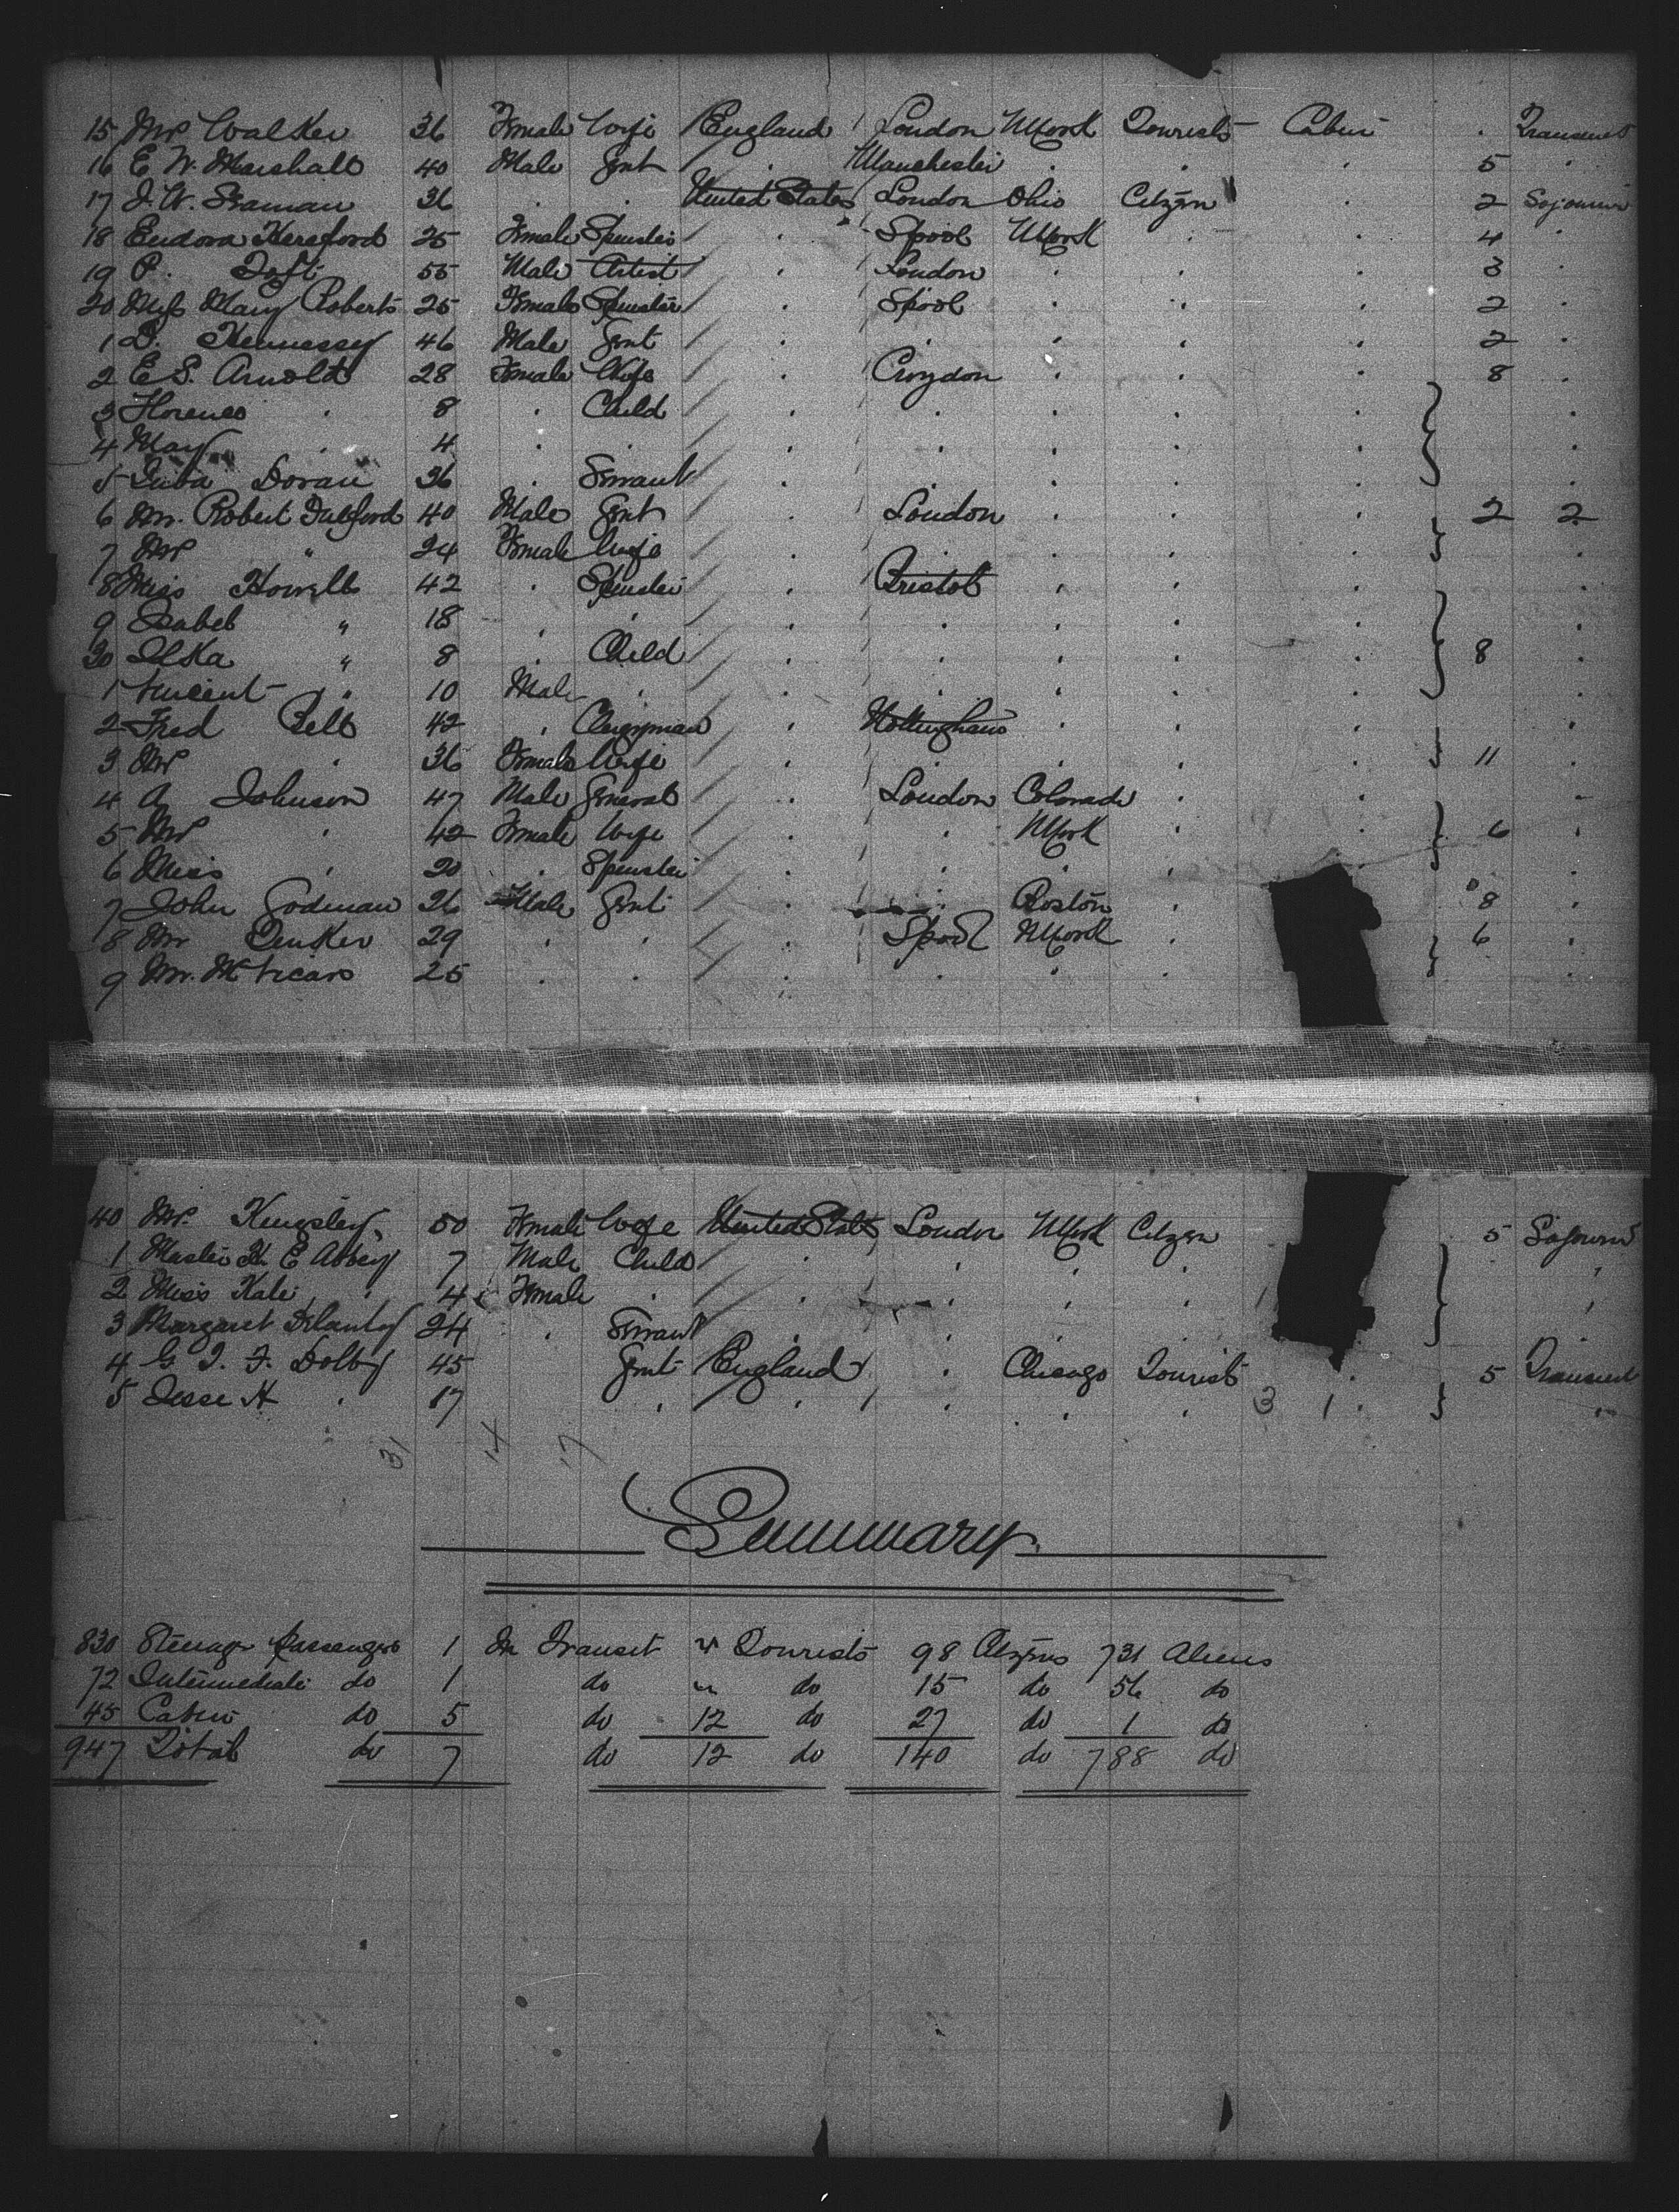 15 Mrs Walker 36 Female Wife England London N York Tourists Cabin . Transient
16 E. W. Marshall 40 Male Gent . Manchester . . . 5 .
17 J. W. Seaman 36 . . United States London Ohio Citizen . 2 Sojourn
18 Eudora Hereford 25 Female Spinster . Spool N York . . 4 .
19 P. Toft 55 Male Artist . London . . . 3 .
20 Miss Mary Roberts 25 Female Spinster . Spool . . . 2 .
1 D. Hennessy 46 Male Gent . . . . . 2 .
2 E S. Arnold 28 Female Wife . Croydon . . . 8 .
3 Florence . 8 . Child . . . . . .
4 May . 4 . . . . . . . .
5 Doran 36 . Servant . . . . . .
6 Mr. Robert 40 Male Gent . London . . . 2 2
7 Mrs " 24 Female Wife . . . . . .
8 Miss Howells 42 . Spinster . Bristol . . . .
9 Isabel " 18 . . . . . . . .
30 Ilka " 8 . Child . . . . . 8 .
1 Vincent " 10 Male . . . . . . .
2 Fred Bell 42 . Clergyman . Nottingham . . . .
3 Mrs . 36 Female Wife . . . . . 11 .
4 A Johnson 47 Male General . London Colorado . . .
5 Mrs . 42 Female Wife . . N York . . 6 .
6 Miss . 20 . Spinster . . . . . .
7 John Godman 26 Male Gent . . Boston . 8 .
8 Mr Denker 29 . . . Spool N York . 6 .
9 Mr. McVicars 25 . . . . . . .
40 Mrs. Kingsley 50 Female Wife United States London N York Citizen 5 Sojourn
1 Master H. E Abbey 7 Male Child . . . . "
2 Miss Kate . 4 Female . . . . . "
3 Margaret Delanty 24 . Servant . . . .
4 G. J. F. Dolby 45 Gent England . Chicago Tourist . 5 Transient
5 Jesse H . 17 . . . . . 3 1 . "
31 14 17
Summary
830 Steerage Passengers 1 In Transit " Tourists 98 Citizens 731 Aliens
72 Intermediate do 1 do " do 15 do 56 do
45 Cabin do 5 do 12 do 27 do 1 do
947 Total do 7 do 12 do 140 do 788 do